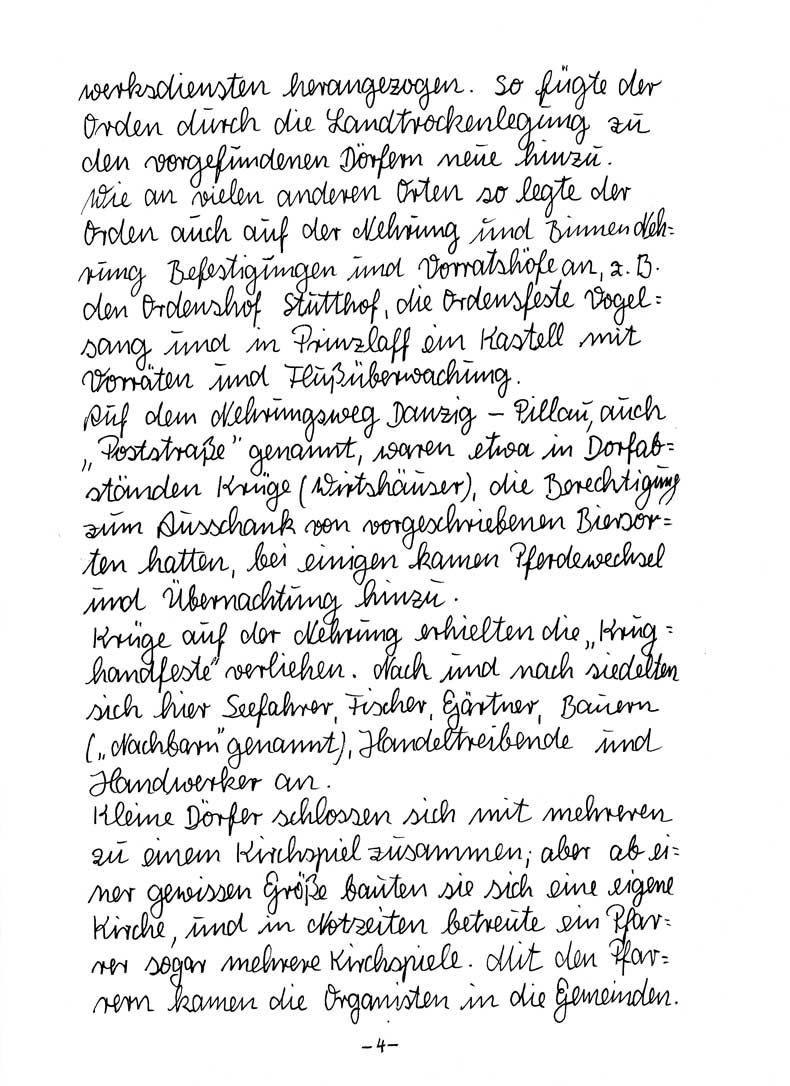 werksdiensten herangezogen. So fügte der
Orden durch die Landtrockenlegung zu
den vorgefundenen Dörfern neue hinzu.
Wie an vielen anderen Orten so legte der
Orden auch auf der Nehrung und BinnenNeh=
rung Befestigungen und Vorratshöfe an, z.B.
den Ordenshof Stutthof, die Ordensfeste Vogel=
sang und in Prinzlaff ein Kastell mit
Vorräten und Flußüberwachung.
Auf dem Nehrungsweg Danzig – Pillau, auch
„Poststraße" genannt, waren etwa in Dorfab=
ständen Krüge (Wirtshäuser), die Berechtigung
zum Ausschank von vorgeschriebenen Biersor=
ten hatten, bei einigen kamen Pferdewechsel
und Übernachtung hinzu.
Krüge auf der Nehrung erhielten die „Krug=
handfeste" verliehen. Nach und nach siedelten
sich hier Seefahrer, Fischer, Gärtner, Bauern
(„Nachbarn" genannt), Handeltreibende und
Handwerker an.
Kleine Dörfer schlossen sich mit mehreren
zu einem Kirchspiel zusammen; aber ab ei=
ner gewissen Größe bauten sie sich eine eigene
Kirche, und in Notzeiten betreute ein Pfar=
rer sogar mehrere Kirchspiele. Mit den Pfar=
rern kamen die Organisten in die Gemeinden.
–4–